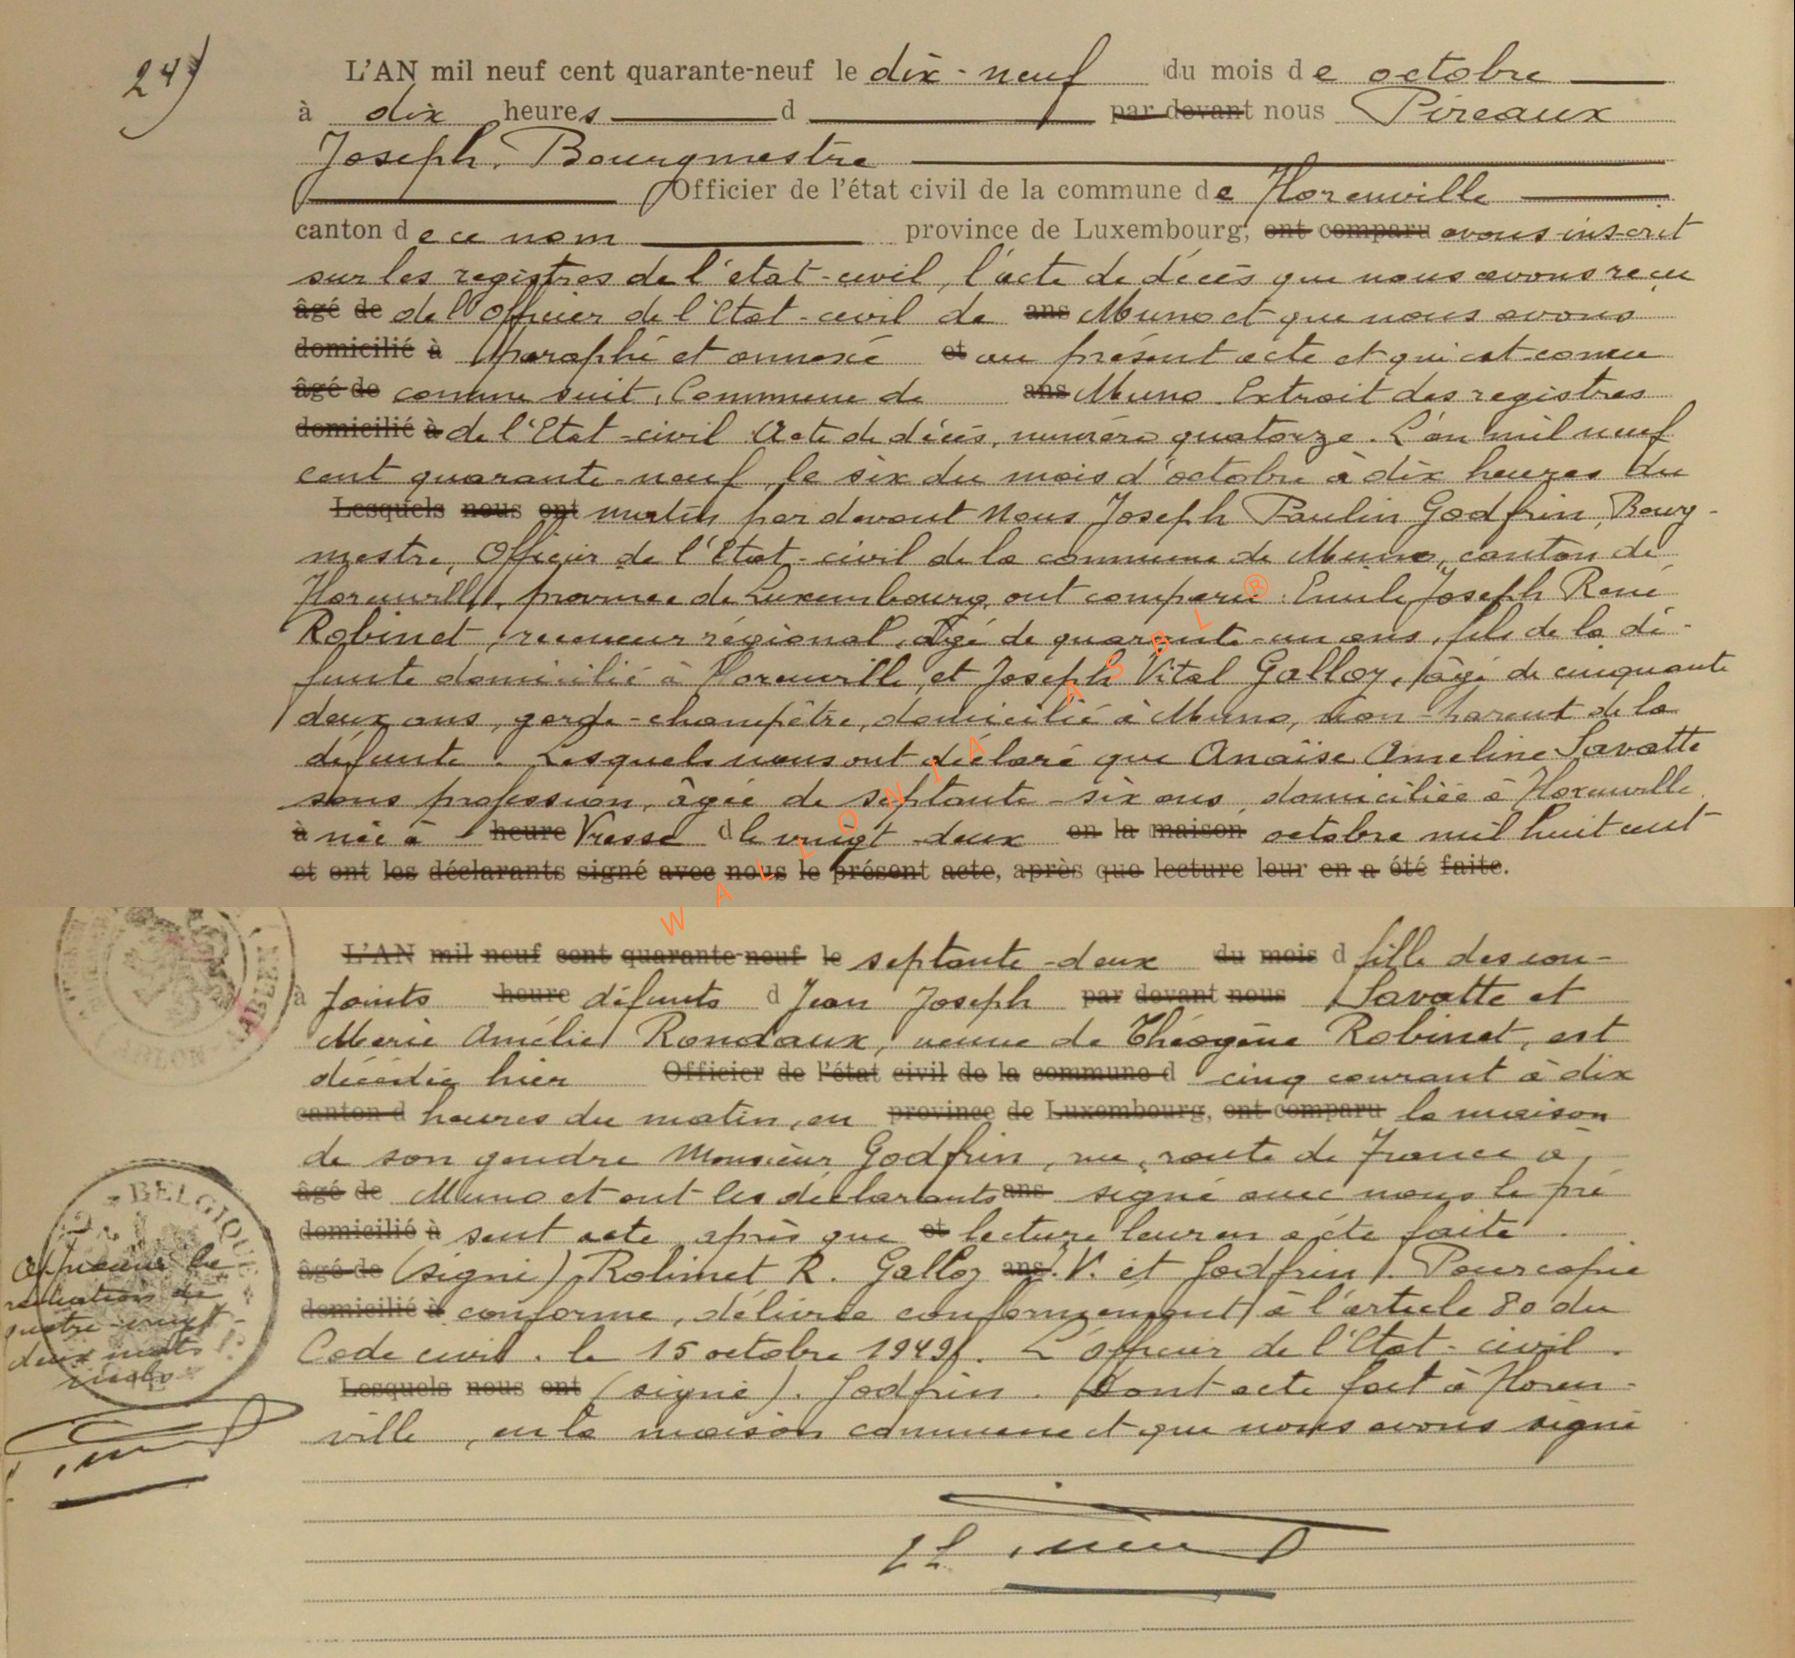 24)
L'AN mil neuf cent quarante-neuf le dix-neuf du mois de octobre
à dix heures d par devant nous Pireaux
Joseph, Bourgmestre
Officier de l'état civil de la commune de Florenville
canton de ce nom province de Luxembourg, ont comparu avons inscrit
sur les registres de l'état-civil, l'acte de décès que nous avons reçu
âgé de de l'Officier de l'Etat-civil de ans Muno et que nous avons
domicilié à paraphé et annexé et au présent acte et qui est connu
âgé de comme suit, Commune de ans Muno Extrait des registres
domicilié à de l'Etat-civil Acte de décès, numéro quatorze. L'an mil neuf
cent quarante-neuf, le six du mois d'octobre à dix heures du
Lesquels nous ont matin par devant Nous Joseph Paulin Godfrin, Bourg-
mestre, Officier de l'Etat-civil de la commune de Muno, canton de
Florenville, province de Luxembourg, ont comparu : Emile Joseph René
Robinet, receveur régional, âgé de quarante-un ans, fils de la dé-
funte domicilié à Florenville, et Joseph Vital Galloy, âgé de cinquante
deux ans, garde-champêtre, domicilié à Muno, non-parent de la
défunte. Lesquels nous ont déclaré que Anaïse Ameline Savatte
sans profession, âgée de septante-six ans, domiciliée à Florenville
à née à heure Vresse d le vingt-deux en la maison octobre mil huit cent
et ont les déclarants signé avec nous le présent acte, après que lecture leur en a été faite.
WALLONIA ASBL ®
L'AN mil neuf cent quarante-neuf le septante-deux du mois d fille des con-
à joints heure défunts d Jean Joseph par devant nous Savatte et
Marie Amélie Rondaux, veuve de Théogène Robinet, est
décédée hier Officier de l'état civil de la commune d cinq courant à dix
canton d heures du matin, en province de Luxembourg, ont comparu la maison
de son gendre Monsieur Godfrin, rue, route de France à
âgé de Muno et ont les déclarants ans signé avec nous le pré
domicilié à sent acte après que et lecture leur en a été faite.
âgé de (signé) Robinet R. Galloy ans V. et Godfrin J. Pour copie
domicilié à conforme, délivrée conformément à l'article 80 du
Code civil. le 15 octobre 1949. L'officier de l'Etat-civil.
Lesquels nous ont (signé). Godfrin. Dont acte fait à Floren-
ville, en la maison commune et que nous avons signé
BELGIQUE
Approuvé la
radiation de
quatre-vingt-
deux mots
nuls